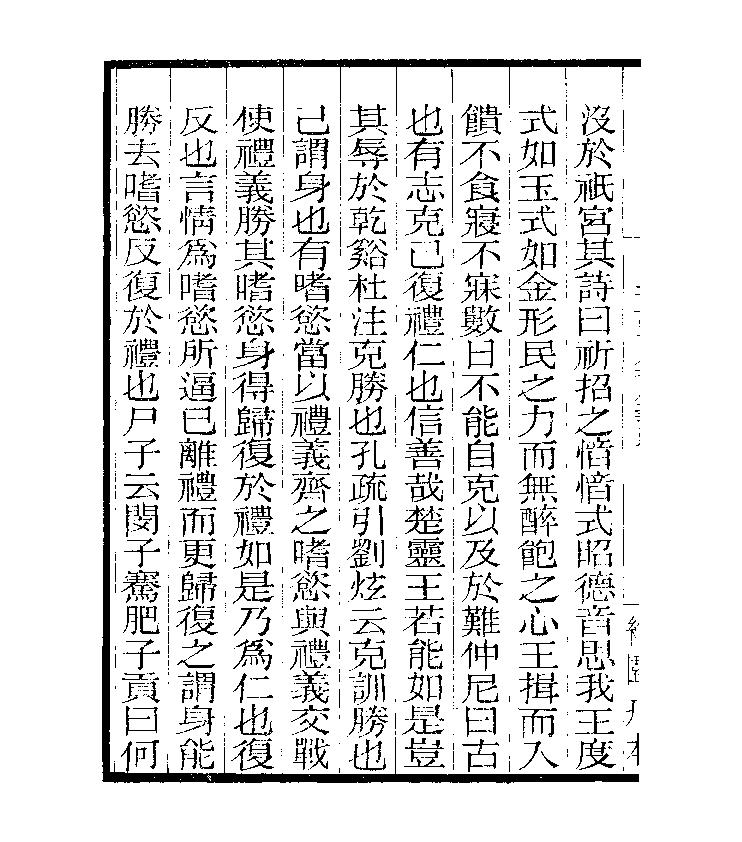 沒於祇宮其詩曰祈招之愔愔式昭德音思我王度
式如玉式如金形民之力而無醉飽之心王揖而入
饋不食寢不寐數日不能自克以及於難仲尼曰古
也有志克己復禮仁也信善哉楚靈王若能如是豈
其辱於乾谿杜注克勝也孔疏引劉炫云克訓勝也
己謂身也有嗜慾當以禮義齊之嗜慾與禮義交戰
使禮義勝其嗜慾身得歸復於禮如是乃為仁也復
反也言情為嗜慾所逼已離禮而更歸復之謂身能
勝去嗜慾反復於禮也尸子云閔子騫肥子貢曰何